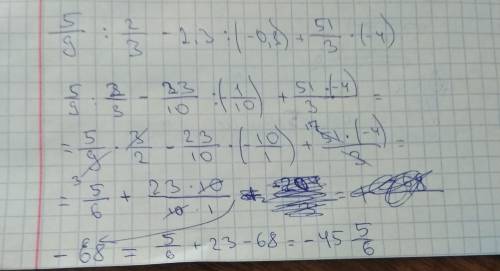 5/9 : 2/3 - 2,3 : (-0,1) + 51/3 · (-4)
5/9 : 2/3 - 23/10 : (1/10) + 51·(-4)/3 =
= 5/9 · 3/2 - 23/10 · (-10/1) + 51·(-4)/3 =
= 5/6 + 23·10/10·1 =
- 68 = 5/6 + 23 - 68 = -45 5/6